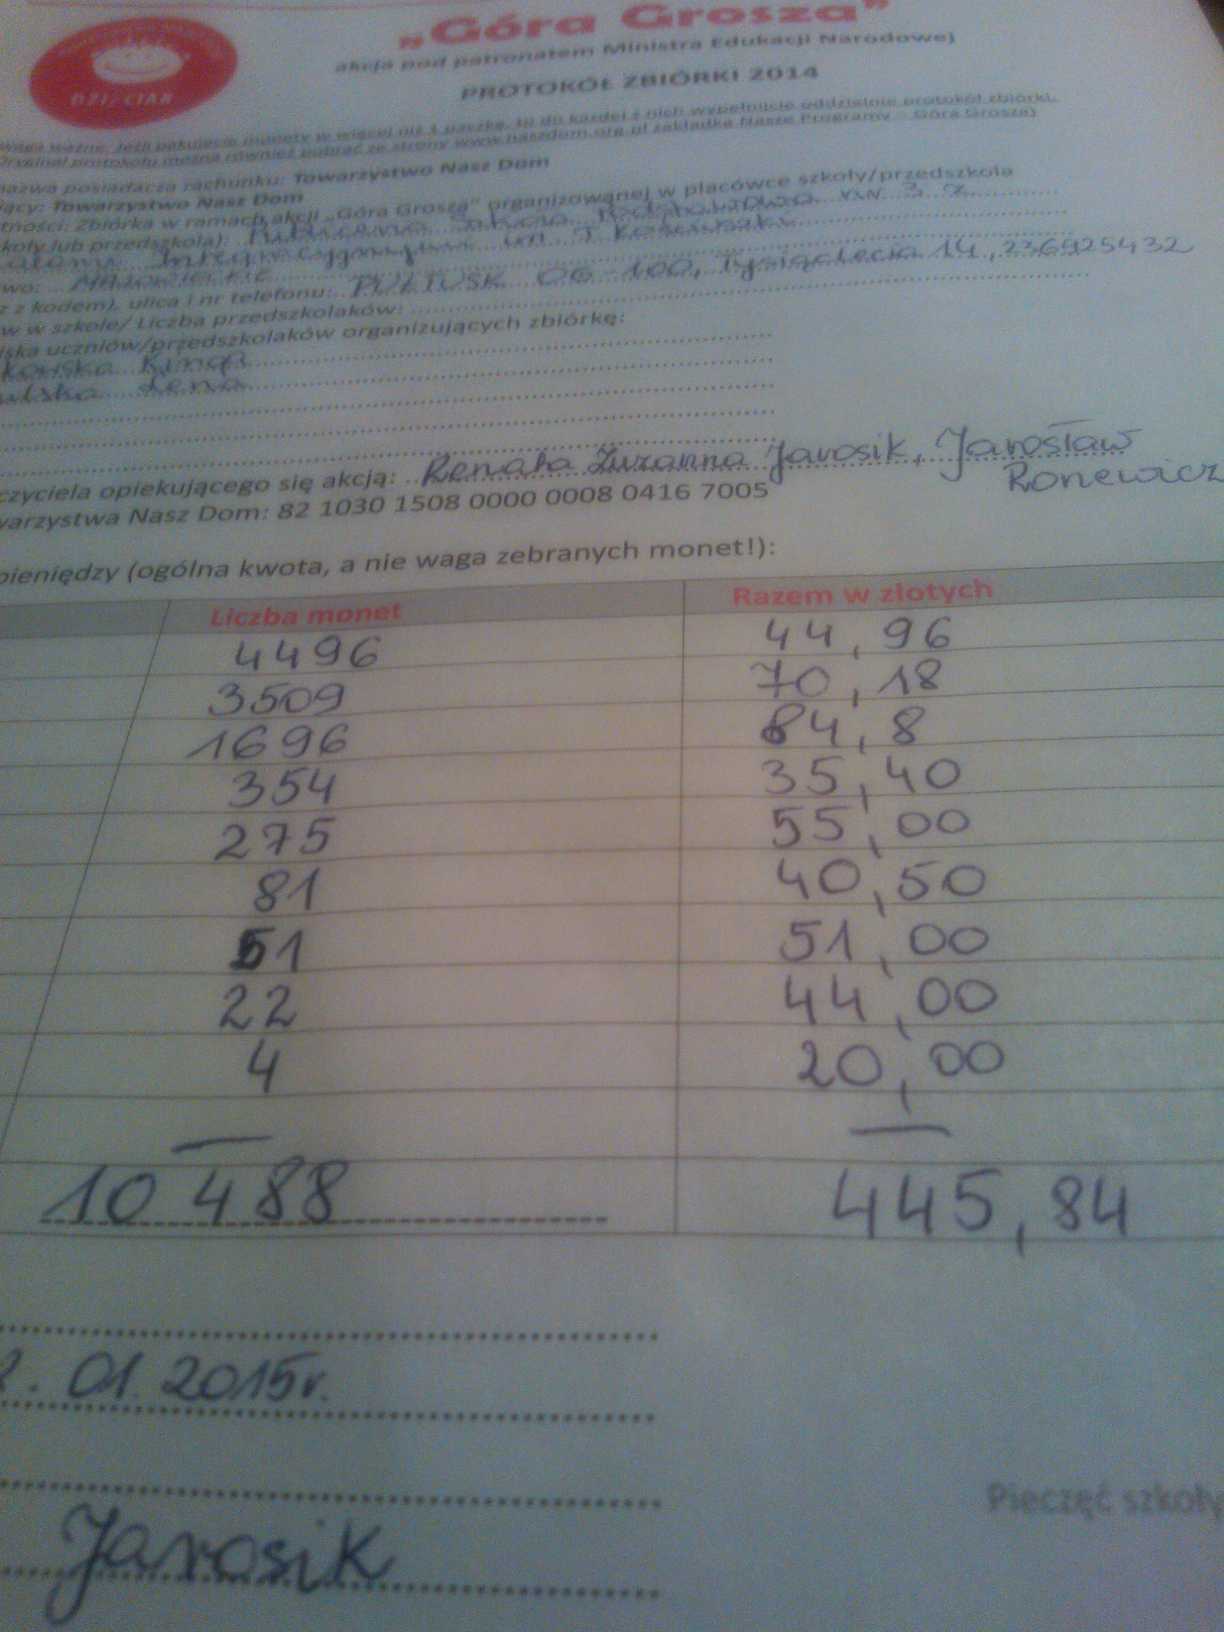 „Góra Grosza”
akcja pod patronatem Ministra Edukacji Narodowej
PROTOKÓŁ ZBIÓRKI 2014
DZIECIAK
ważne: Jeśli pakujecie monety w więcej niż 1 paczkę, to do każdej z nich wypełnijcie oddzielnie protokół zbiórki.
protokołu można również pobrać ze strony www.naszdom.org.pl zakładka Nasze Programy – Góra Grosza)
nazwa posiadacza rachunku: Towarzystwo Nasz Dom
jący: Towarzystwo Nasz Dom
tności: Zbiórka w ramach akcji „Góra Grosza” organizowanej w placówce szkoły/przedszkola
koły lub przedszkola): Publiczna Szkoła Podstawowa nr 3 z
im. T. Kościuszki
wo: MAZOWIECKIE
z z kodem), ulica i nr telefonu: PUŁTUSK 06-100, Tysiąclecia 14, 236925432
w w szkole/ Liczba przedszkolaków:
iska uczniów/przedszkolaków organizujących zbiórkę:
kowska Kinga
ulska Lena
czyciela opiekującego się akcją: Renata Zuzanna Jarosik, Jarosław
Ronewicz
warzystwa Nasz Dom: 82 1030 1508 0000 0008 0416 7005
pieniędzy (ogólna kwota, a nie waga zebranych monet!):
Liczba monet Razem w złotych
4496 44,96
3509 70,18
1696 84,8
354 35,40
275 55,00
81 40,50
51 51,00
22 44,00
4 20,00
— —
10 488 445,84
. 01. 2015r.
Pieczęć szkoły
Jarosik